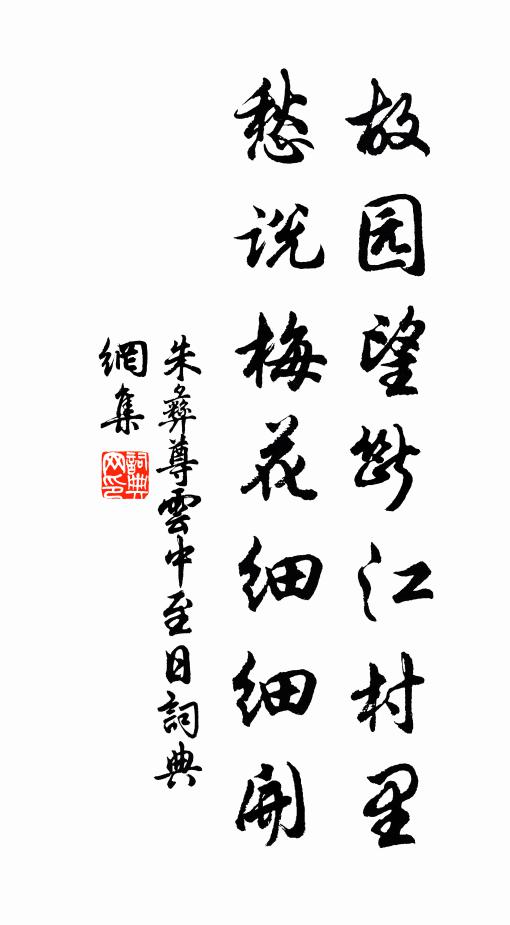 故园望断江村里
愁说梅花细细開
朱彝尊雲中至日詞典
網集
詞典網印